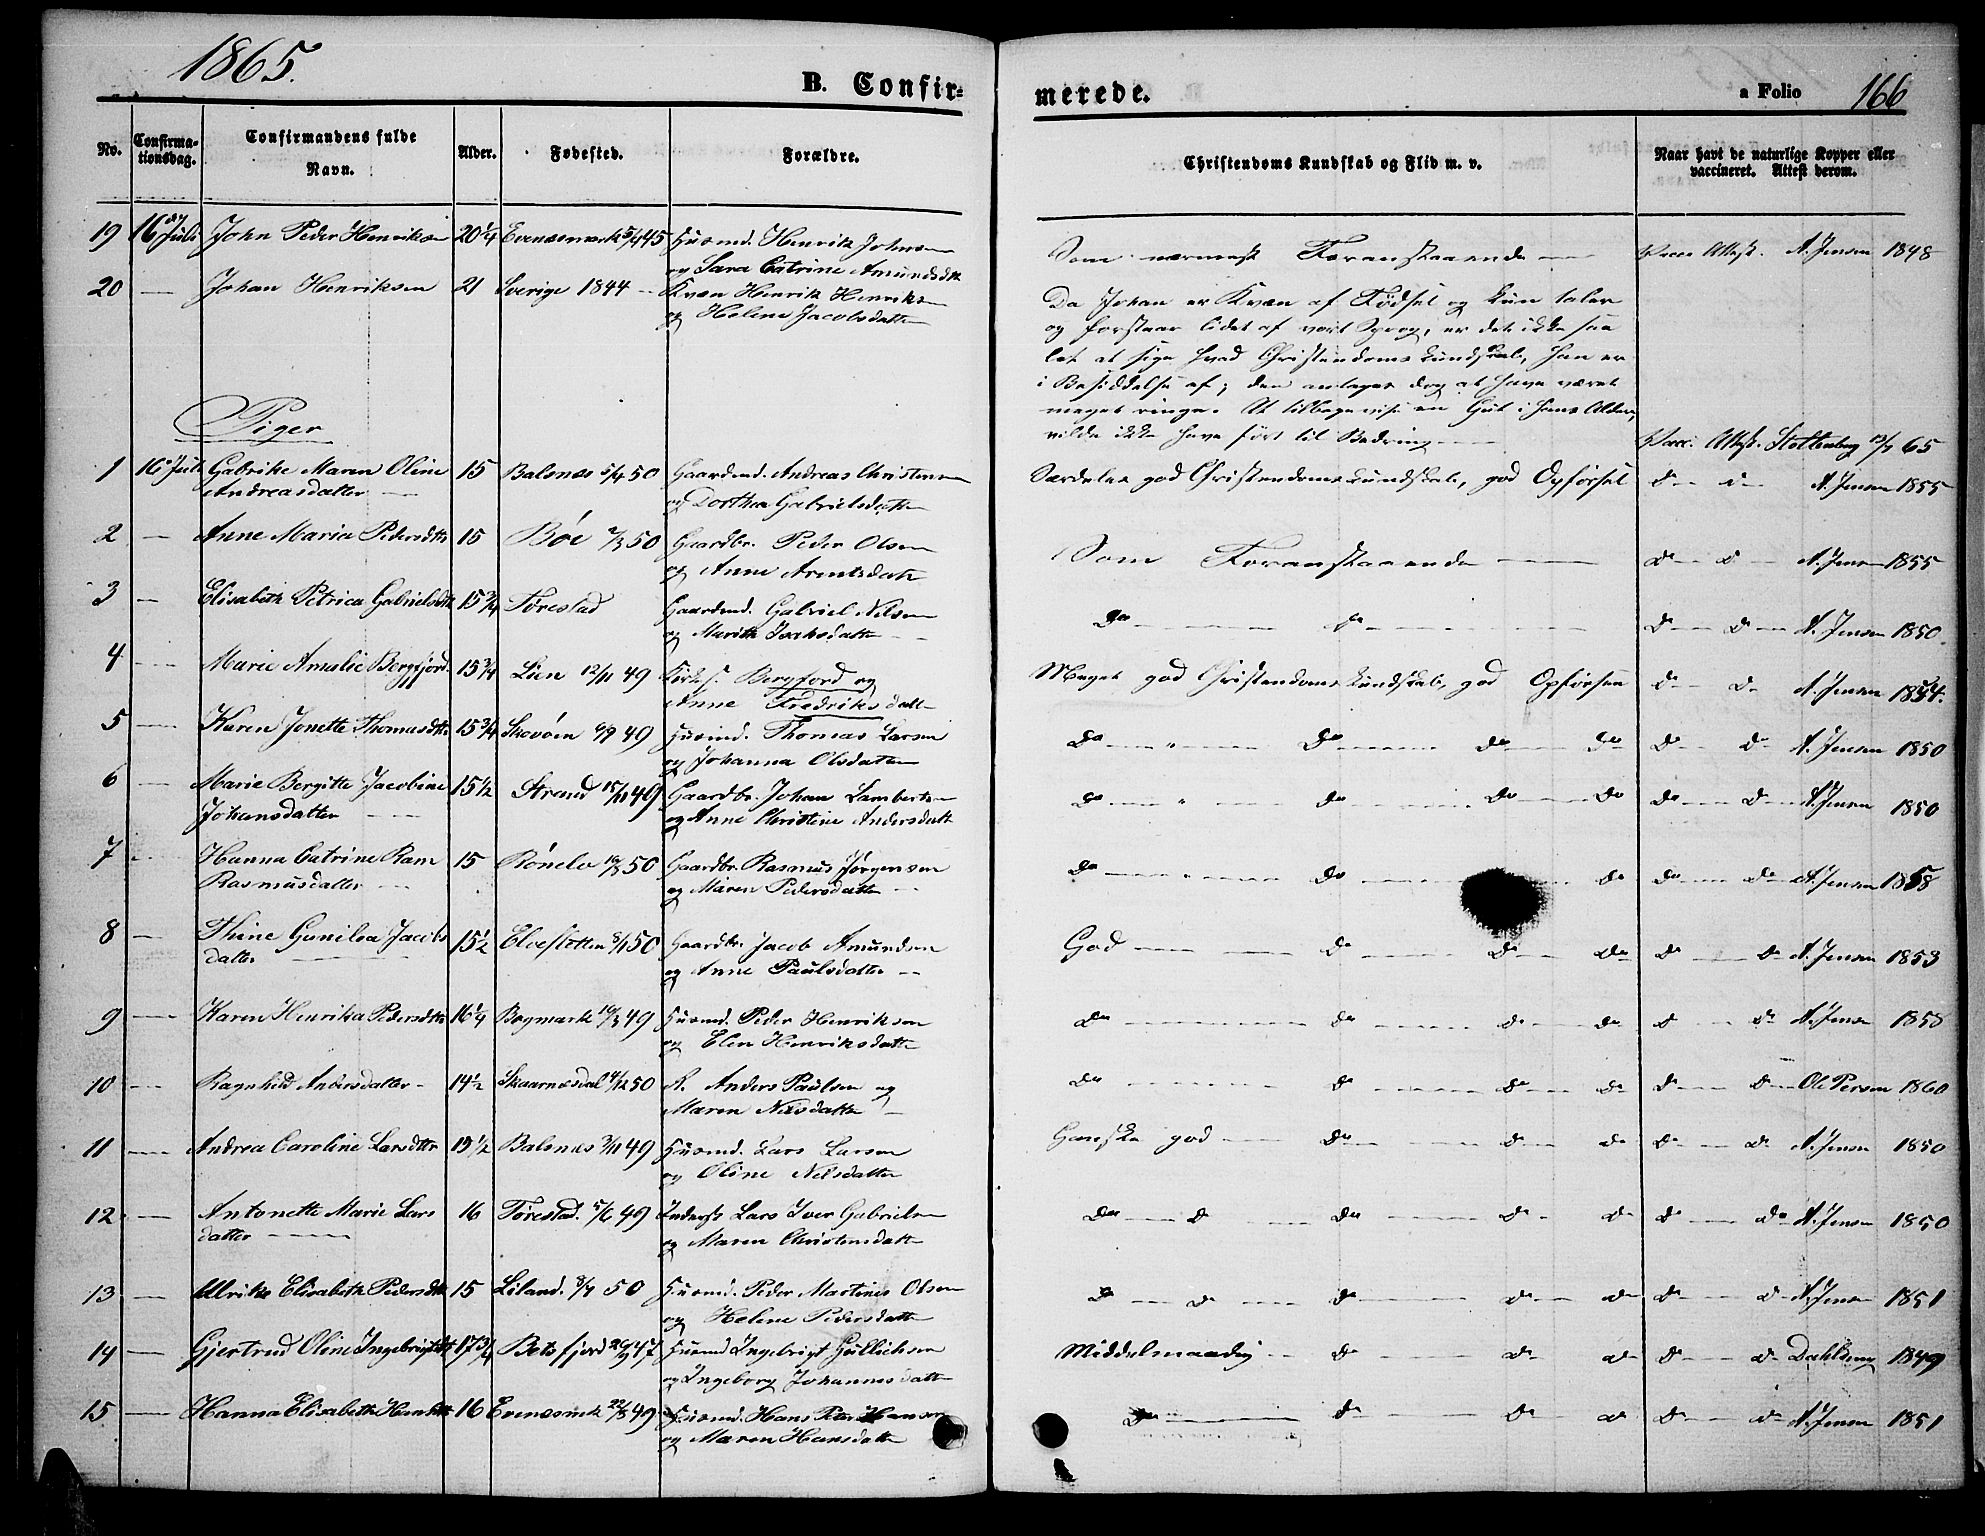 1865.
B. Confir-
merede.
a Folio 166
No.
Confirma-
tionsdag.
Confirmandens fulde
Navn.
Alder.
Fødested.
Forældre.
Christendoms Kundskab og Flid m. v.
Naar havt de naturlige Kopper eller
vaccineret. Attest derom.
19 16de Juli John Peder Henriksen 20 1/4 Evenesmark 5/4 45 Huusmd. Henrik Johnsen
og Sara Catrine Amundsdtr
Som nærmest Foranstaaende Vacc. Attest. A. Jensen 1848
20 — Johan Henriksen 21 Sverige 1844 Kvæn Henrik Henriksen
og Helene Jacobsdatter
Da Johan er Kvæn af Fødsel og kun taler
og forstaar lidet af vort Sprog, er det ikke saa
let at sige hvad Christendomskundskab, han er
i Besiddelse af; den antages dog at have været
meget ringe. At tilbagevise en Gut i hans Alder,
vilde ikke have ført til Bedring
Vacc. Attest. Stoltenberg 65
Piger
1 16de Juli Gabrike Maren Oline 15 Balsnes 5/4 50 Gaardmd. Andreas Christensen
Andreasdatter og Dorthea Gabrielsdatter
Særdeles god Christendomskundskab, god Opførsel do do A. Jensen 1855
2 — Anne Maria Pedersdtr 15 Bøe 2/3 50 Gaardbr. Peder Olsen
og Anne Arntsdatter
Som Foranstaaende do do A. Jensen 1855
3 — Elisabeth Petrica Gabrielsdtr 15 3/4 Tørestad Gaardmd. Gabriel Nilsen
og Marith Isachsdatter
do do do do A. Jensen 1850
4 — Marie Amalie Bergfjord 15 3/4 Lien 12/11 49 Kirkes. Bergfjord og
Anne Fredriksdatter
Meget god Christendomskundskab, god Opførsel do do A. Jensen 1854.
5 — Karen Jonette Thomasdtr 15 3/4 Skovøen 6/9 49 Huusmd. Thomas Larsen
og Johanna Olsdatter
do do do do do do A. Jensen 1850
6 — Marie Bergitte Jacobine 15 1/2 Strand 15/11 49 Gaardbr. Johan Lambertsen
Johansdatter og Anne Christine Andersdatter
do do do do do do A. Jensen 1850
7 — Hanna Catrine Ram 15 Rønelv 10/3 50 Gaardbr. Rasmus Jørgensen
Rasmusdatter og Maren Pedersdatter
do do do do do A. Jensen 1858
8 — Thine Gunilea Jacobs 15 1/2 Elveslotten 8/1 50 Gaardbr. Jacob Amundsen
datter og Anne Paulsdatter
God do do do do do A. Jensen 1853
9 — Karen Henrika Pedersdtr 16 1/4 Bogmark 10/3 49 Huusmd. Peder Henriksen
og Elen Henriksdatter
do do do do do do A. Jensen 1858
10 — Ragnhild Andersdatter 14 1/2 Skaarnesdal 4/12 50 A. Anders Paulsen og
Maren Nilsdatter
do do do do do do Ole Persen 1860
11 — Andrea Caroline Larsdtr 15 1/2 Balsnes 3/11 49 Huusmd. Lars Larsen
og Oline Nilsdatter
Ganske god do do do do do A. Jensen 1850
12 — Antonette Marie Lars 16 Tørestad. 5/6 49 Inderst Lars Iver Gabrielsen
datter og Maren Christensdatter
do do do do do do do A. Jensen 1850
13 — Ulrike Elisabeth Pedersdtr 15 Liland. 8/7 50 Huusmd. Peder Martines Olsen
og Helene Pedersdatter
do do do do do do do A. Jensen 1851
14 — Gjertrud Oline Ingebrigtsdtr 17 3/4 Botsfjord 26/9 47 Huusmd Ingebrigt Gullichsen
og Ingeborg Johannesdatter
Middelmaadig do do do do do 1849
15 — Hanna Elisabeth Hansdtr 16 Evenesmrk 22/5 49 Huusmd. Hans Peter Hansen
og Maren Hansdatter
do do do do do A. Jensen 1851